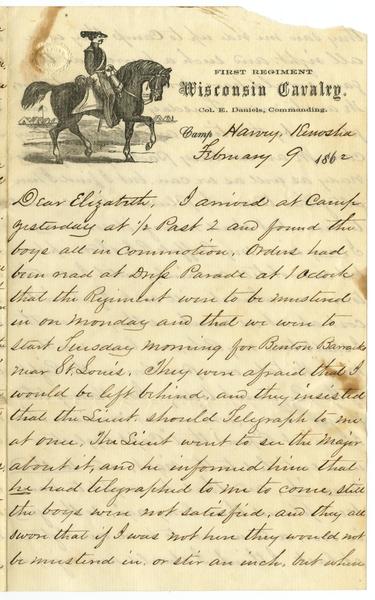 FIRST REGIMENT
Wisconsin Cavalry.
Col. E. Daniels, Commanding.
Camp Harvey, Kenosha
February 9 1862
Dear Elizabeth, I arrived at Camp
yesterday at 1/2 Past 2 and found the
boys all in commotion. Orders had
been read at Dress Parade at 1 Oclock
that the Regiment were to be mustered
in on Monday and that we were to
start Tuesday morning for Benton Barracks
near St. Louis. They were afraid that I
would be left behind, and they insisted
that the Lieut. should Telegraph to me
at once. The Lieut went to see the Major
about it, and he informed him that
he had telegraphed to me to come, still
the boys were not satisfied, and they all
swore that if I was not here they would not
be mustered in. or stir an inch, but when